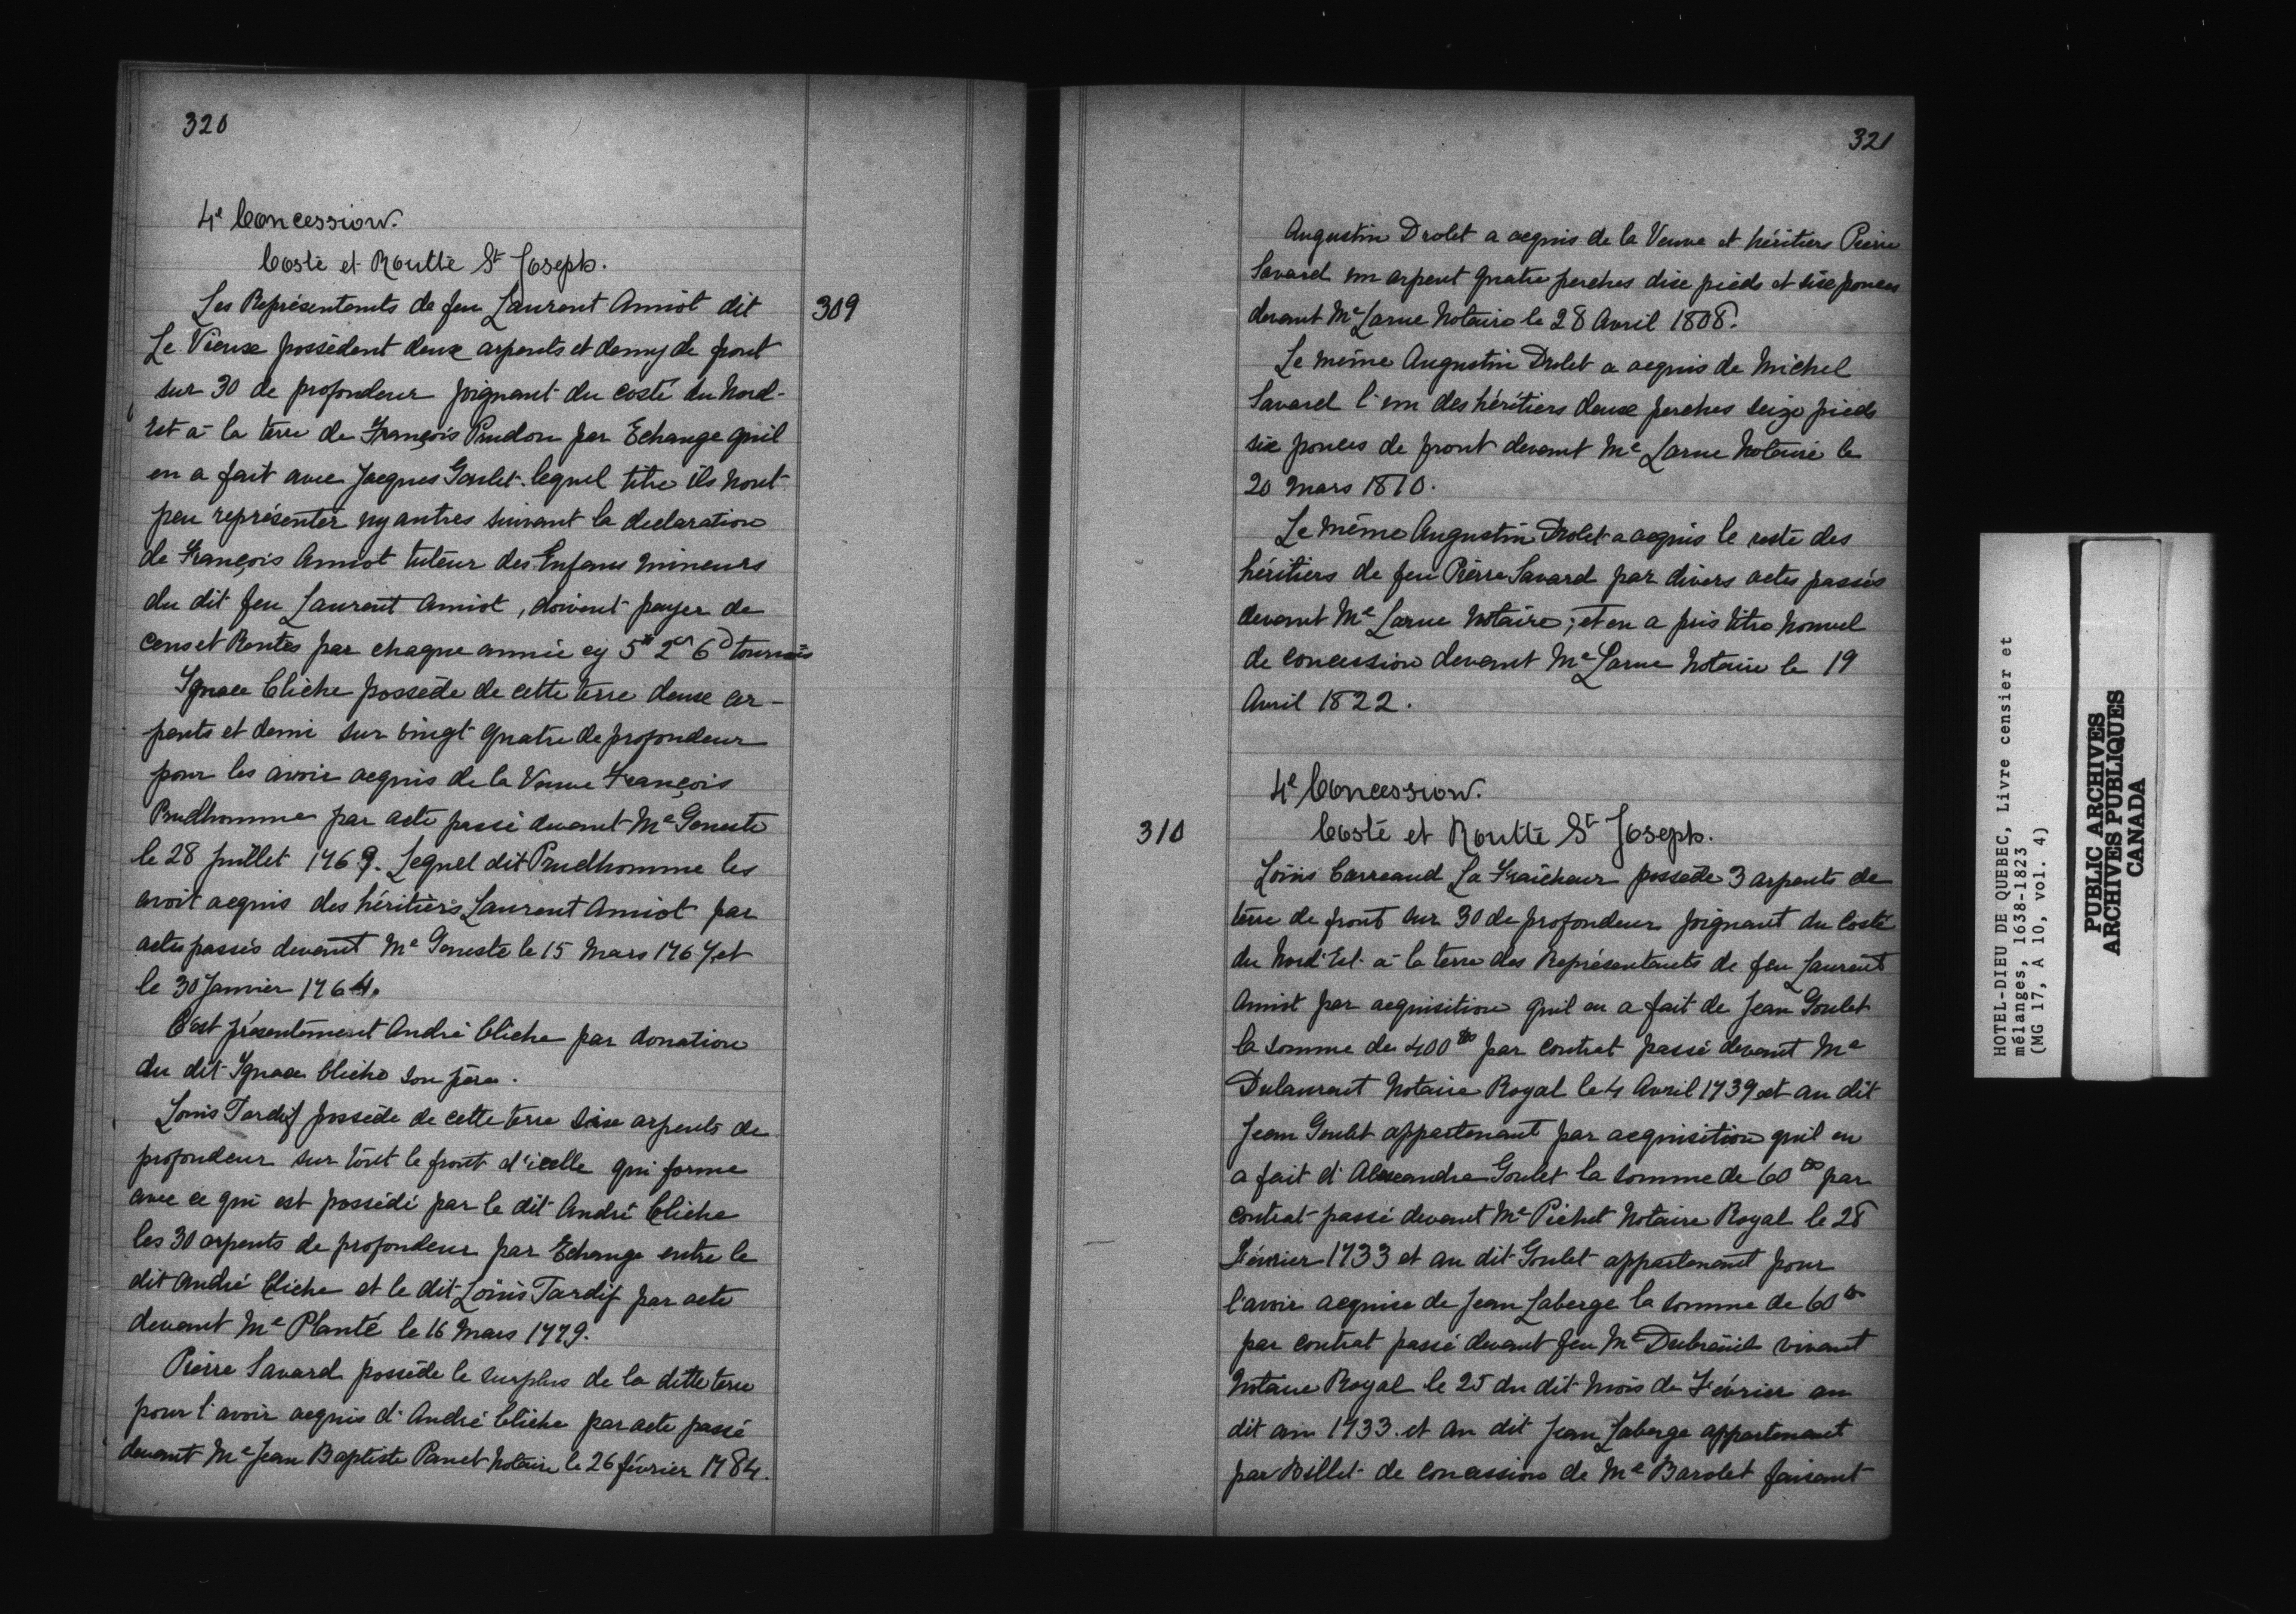 320
4e Concession.
Costé et Routte St Joseph.
309
Les Représentants de feu Laurent Amiot dit
Le Vieux possèdent deux arpents et demy de front
sur 30 de profondeur joignant du costé du Nord-
Est à la terre de François Prudon par Echange quil
en a fait avec Jacques Goulet lequel titre ils nont
peu représenter ny autres suivant la declaration
de François Amiot tuteur des Enfans mineurs
du dit feu Laurent Amiot, doivent payer de
cens et Rentes par chaque année cy 5# 2s 6d tournois
Ignace Cliche possède de cette terre deux ar-
pents et demi sur vingt quatre de profondeur
pour les avoir acquis de la Veuve François
Prudhomme par acte passé devant Me Geneste
le 28 juillet 1769. Lequel dit Prudhomme les
avoit acquis des héritiers Laurent Amiot par
actes passés devant Me Geneste le 15 Mars 1767, et
le 30 Janvier 1764.
C'est présentement André Cliche par donation
du dit Ignace Cliche son père.
Louis Tardif possède de cette terre six arpents de
profondeur sur tout le front d'icelle qui forme
avec ce qui est possédé par le dit André Cliche
les 30 arpents de profondeur par Echange entre le
dit André Cliche et le dit Louis Tardif par acte
devant Me Planté le 16 Mars 1779.
Pierre Savard possède le surplus de la ditte terre
pour l'avoir acquis d'André Cliche par acte passé
devant Me Jean Baptiste Panet Notaire le 26 février 1784.
321
Augustin Drolet a acquis de la Veuve et héritiers Pierre
Savard un arpent quatre perches dix pieds et six pouces
devant Me Larue Notaire le 28 Avril 1808.
Le même Augustin Drolet a acquis de Michel
Savard l'un des héritiers deux perches seize pieds
six pouces de front devant Me Larue Notaire le
20 Mars 1810.
Le même Augustin Drolet a acquis le reste des
héritiers de feu Pierre Savard par divers actes passés
devant Me Larue Notaire; et en a pris titre nouvel
de concession devant Me Larue Notaire le 19
Avril 1822.
4e Concession.
310
Costé et Routte St Joseph.
Louis Carreaud La Fraicheur possède 3 arpents de
terre de front sur 30 de profondeur joignant du Costé
du Nord'Est à la terre des Représentants de feu Laurent
Amiot par acquisition quil en a fait de Jean Goulet
la somme de 400 lbs par contrat passé devant Me
Dulaurent Notaire Royal le 4 Avril 1739 et au dit
Jean Goulet appartenant par acquisition quil en
a fait d'Alexandre Goulet la somme de 60 lbs par
contrat passé devant Me Pichet Notaire Royal le 28
Février 1733 et au dit Goulet appartenant pour
l'avoir acquise de Jean Laberge la somme de 60 lbs
par contrat passé devant feu Me Dubreüil vivant
Notaire Royal le 25 du dit mois de Février au
dit an 1733. et au dit Jean Laberge appartenant
par Billet de concession de Me Barolet faisant
HOTEL-DIEU DE QUEBEC, Livre censier et
mélanges, 1638-1823
(MG 17, A 10, vol. 4)
PUBLIC ARCHIVES
ARCHIVES PUBLIQUES
CANADA